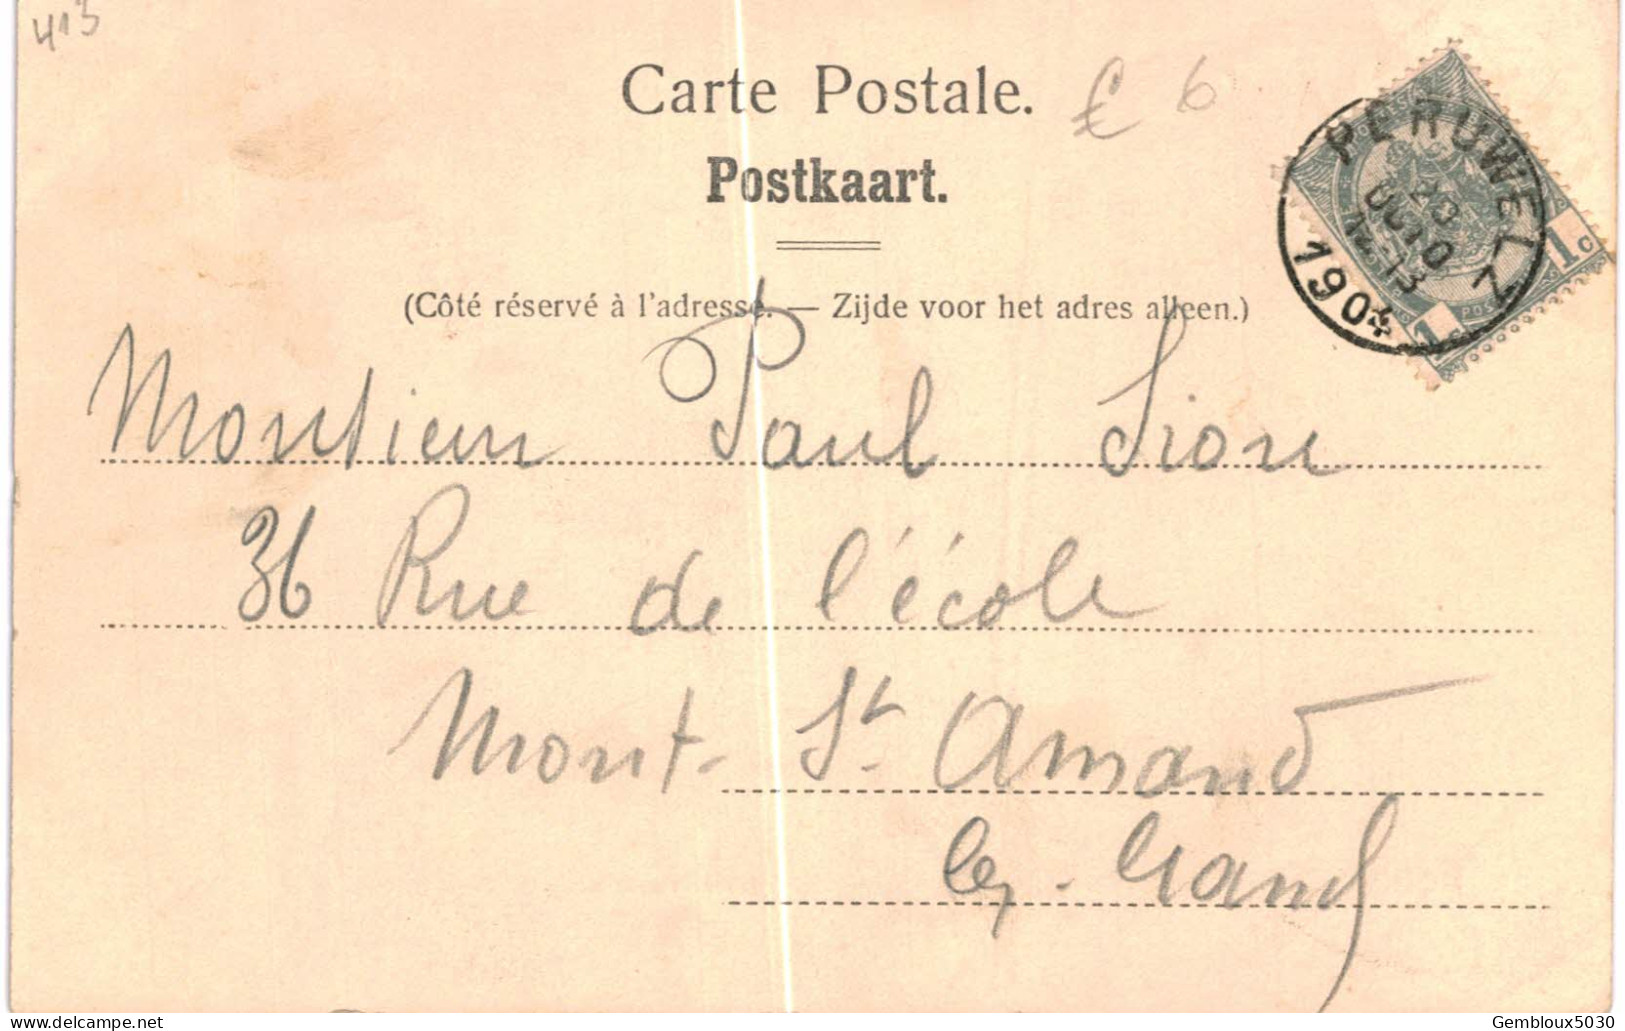 413
Carte Postale.
€ 6
Postkaart.
PERUWELZ
20
OCTO
12-13
1904
1c
1c
(Côté réservé à l'adresse. — Zijde voor het adres alleen.)
Monsieur Paul Sion
36 Rue de l'école
Mont-St-Amand
lez-Gand
delcampe.net
Gembloux5030